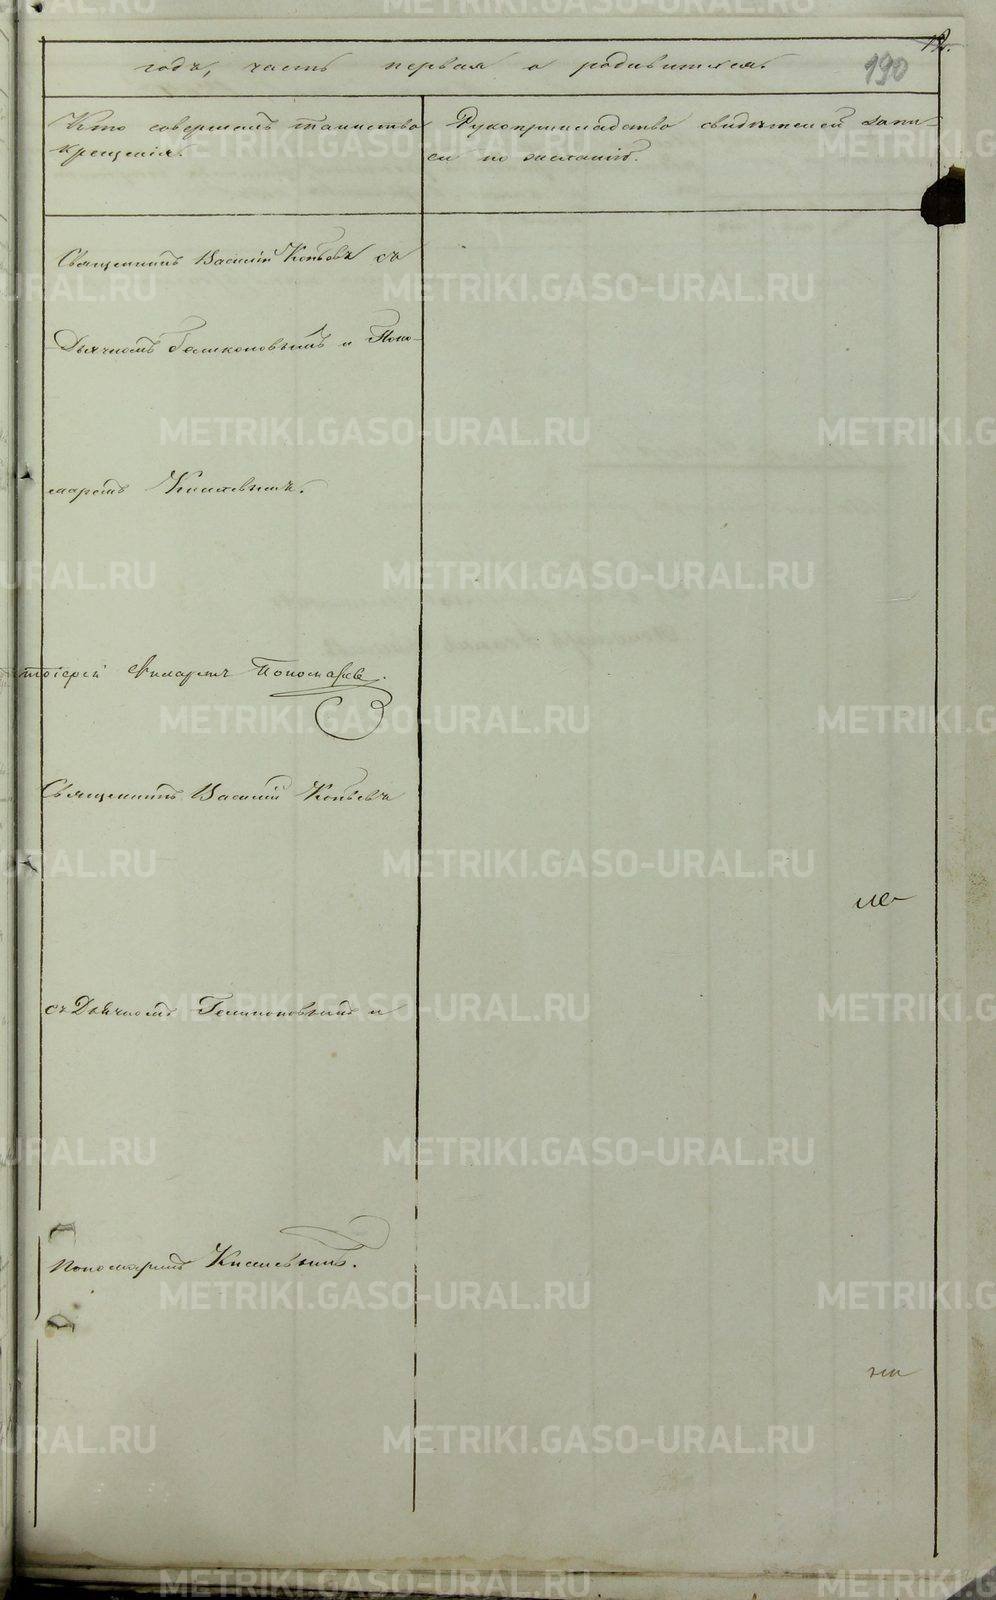 12.
190
годъ, часть первая о родившихся.
Кто совершалъ таинство
крещенія.
Рукоприкладство свидѣтелей запи-
си по желанію.
Священникъ Василій Копѣевъ съ
Дьячкомъ Геликоновымъ и Поно-
маремъ Киселевымъ.
Филаретъ Пономаревъ.
Священникъ Василій Копѣевъ
съ Дьячкомъ Геликоновымъ и
Пономаремъ Киселевымъ.
METRIKI.GASO-URAL.RU